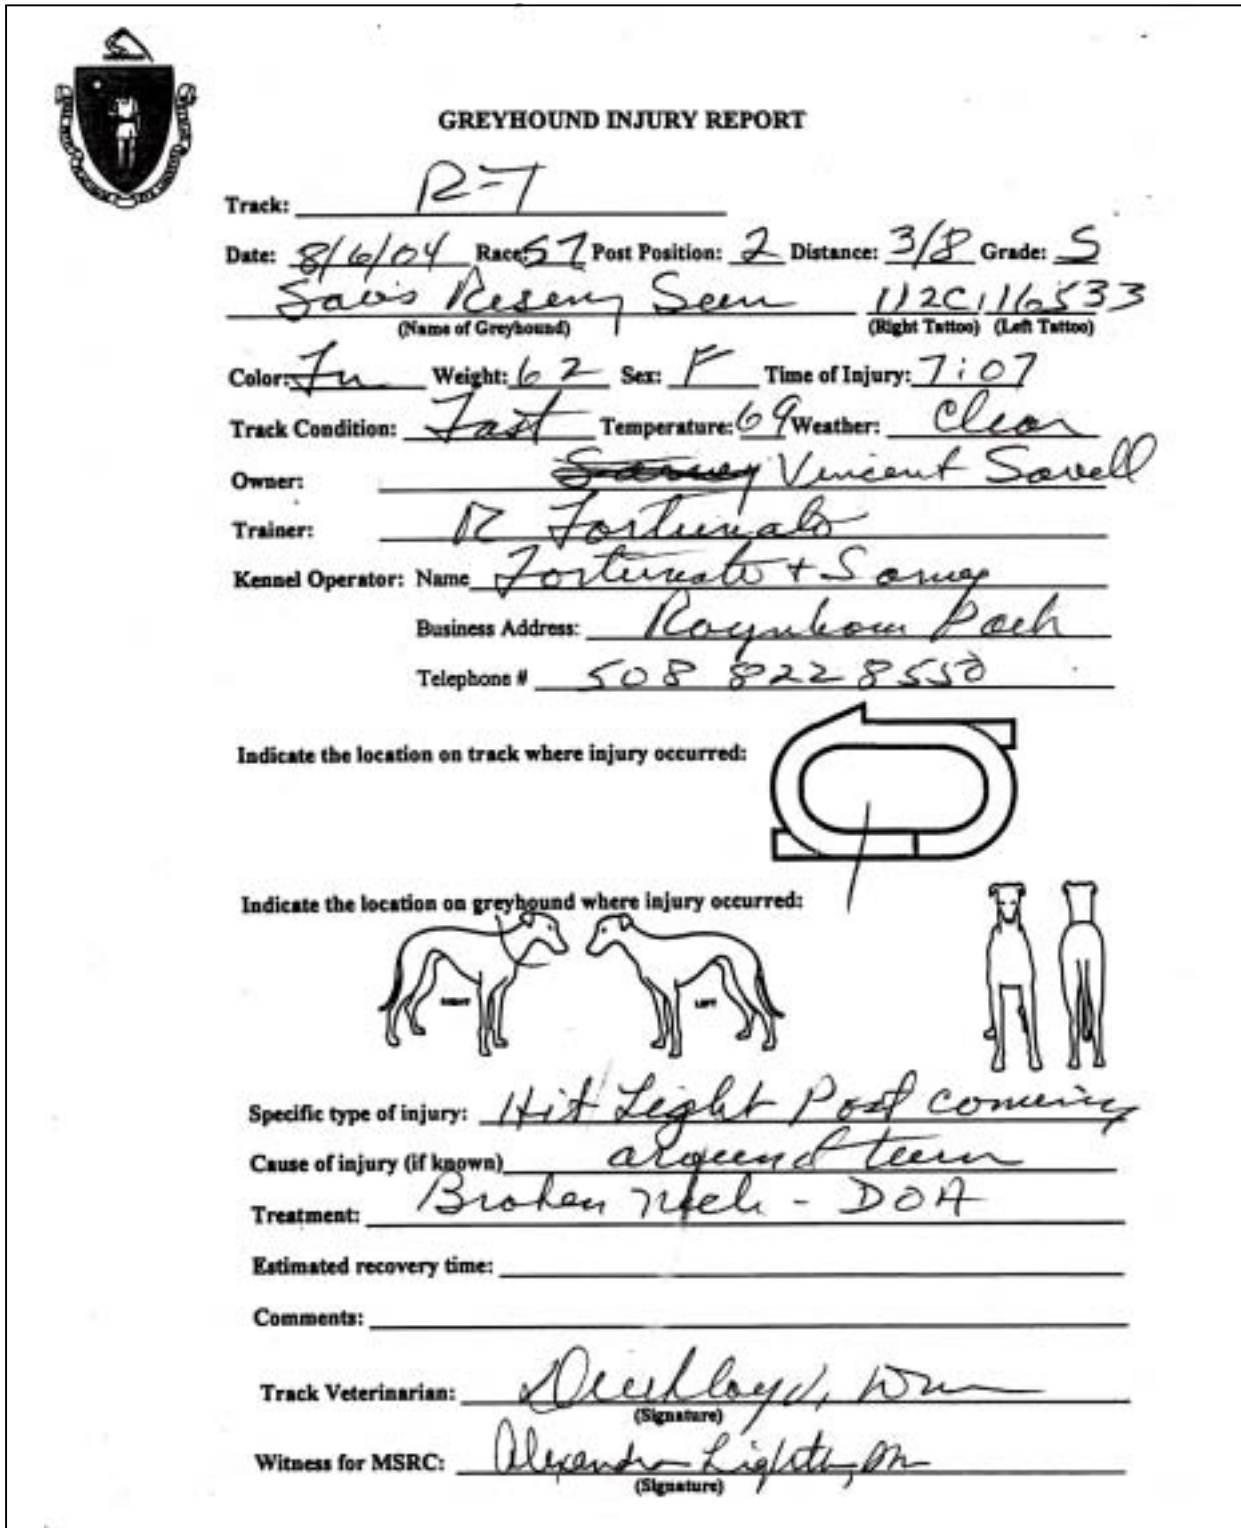 GREYHOUND INJURY REPORT
Track: R-T
Date: 8/6/04 Race: S7 Post Position: 2 Distance: 3/8 Grade: S
112C 16533
(Name of Greyhound) (Right Tattoo) (Left Tattoo)
Color: Weight: 62 Sex: F Time of Injury: 7:07
Track Condition: Fast Temperature: 69 Weather: Clear
Owner: Vincent Savell
Trainer: R Fortunato
Kennel Operator: Name Fortunato +
Business Address: Raynham Park
Telephone # 508 822 8550
Indicate the location on track where injury occurred:
Indicate the location on greyhound where injury occurred:
RIGHT LEFT
Specific type of injury: Hit Light Post coming
Cause of injury (if known) around turn
Treatment: Broken Neck - DOA
Estimated recovery time:
Comments:
Track Veterinarian:
(Signature)
Witness for MSRC: Alexandra
(Signature)